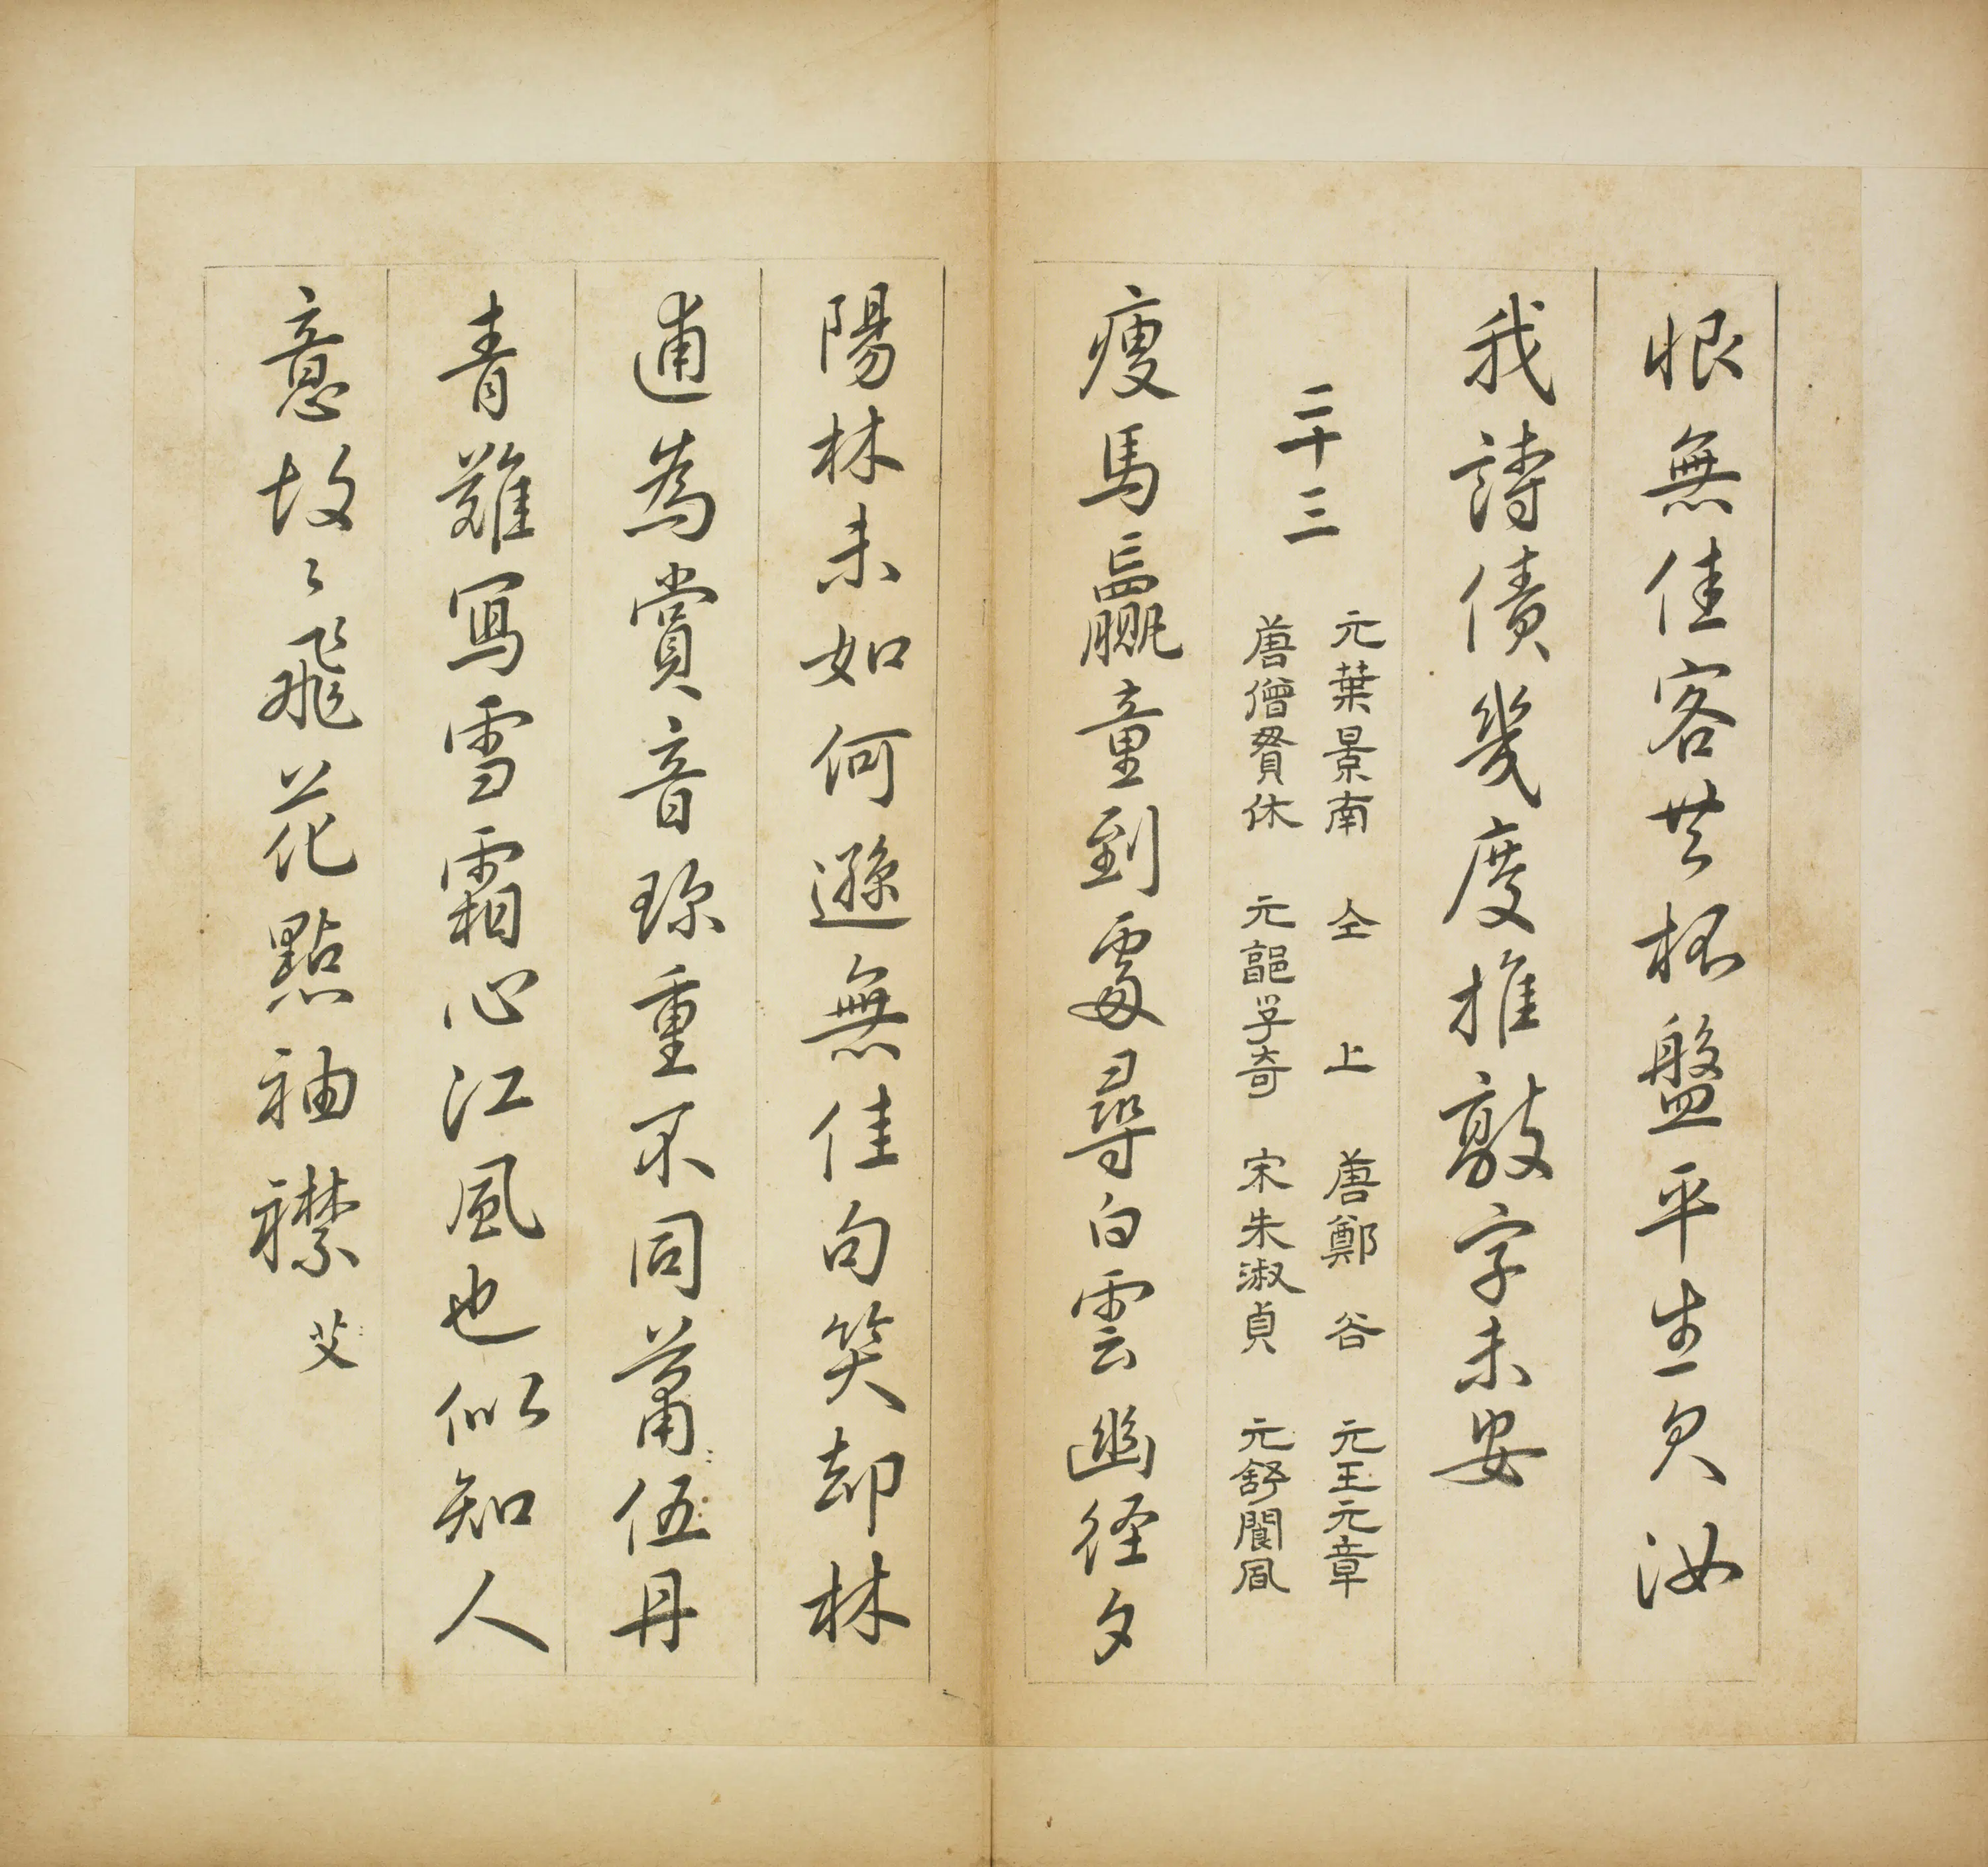 恨無佳客共杯盤平生欠汝
我詩債幾度推敲字未安
二十三
元葉景南　仝上　唐鄭谷　元王元章
唐僧貫休　元謳孚奇　宋朱淑貞　元舒閬風
瘦馬羸童到處尋白雲幽径夕
陽林未如何遜無佳句笑却林
逋為賞音珍重不同萧伍丹
青難寫雪霜心江風也似知人
意故〻飛花點袖襟艾